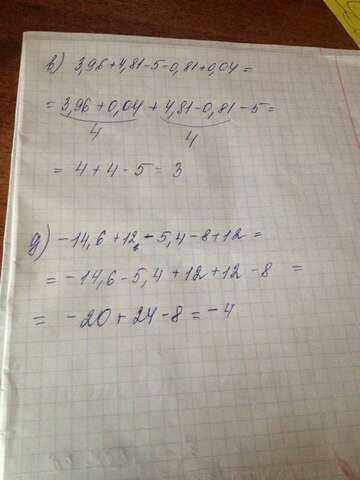 в) 3,96+4,81-5-0,81+0,04=
= 3,96+0,04 + 4,81-0,81 -5=
4 4
= 4+4-5=3
д) -14,6+12-5,4-8+12=
= -14,6-5,4+12+12-8 =
= -20+24-8=-4